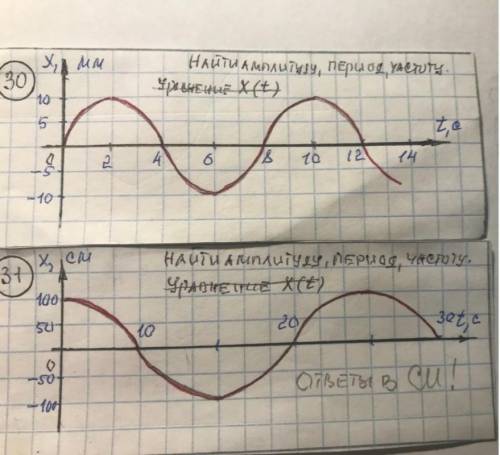 30
X, мм
Найти амплитуду, период, частоту.
Уравнение X(t)
10
5
0
2 4 6 8 10 12 14
t, с
-5
-10
31
X, см
Найти амплитуду, период, частоту.
Уравнение X(t)
100
50
10 20 30 t, с
0
-50
-100
Ответы в СИ!